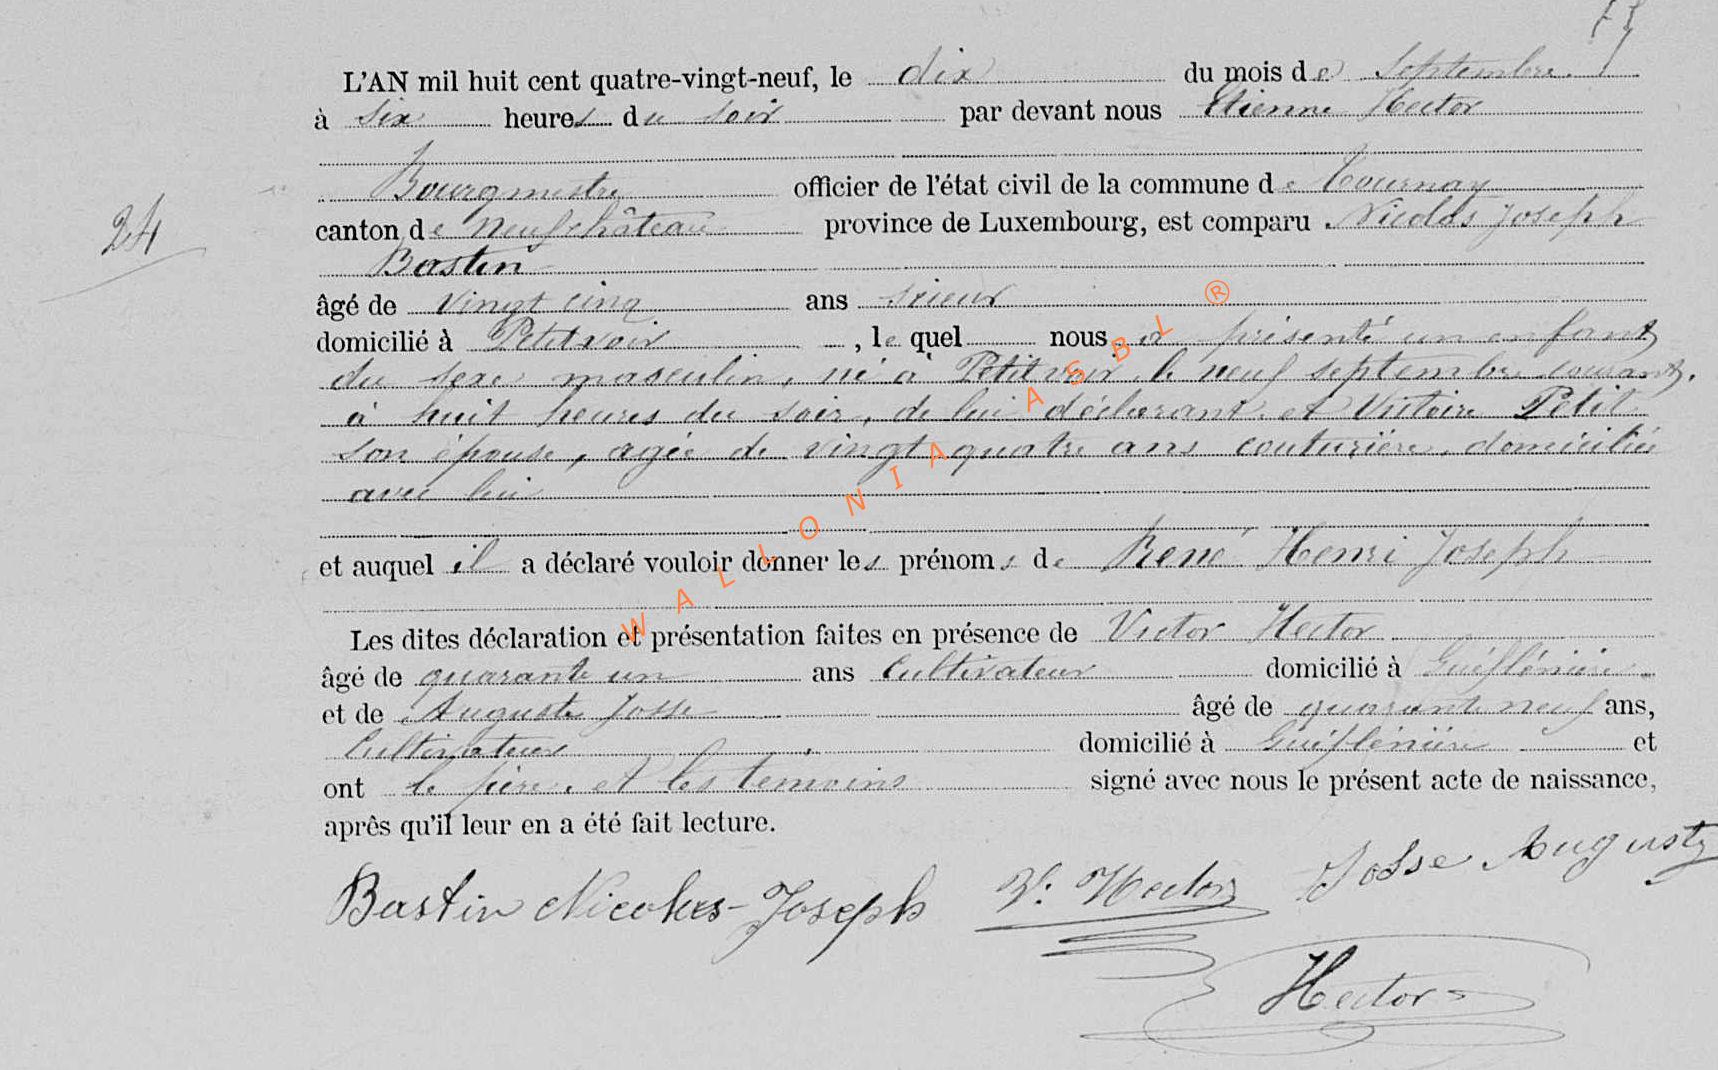 L'AN mil huit cent quatre-vingt-neuf, le dix du mois de Septembre
à six heures du soir par devant nous Etienne Hector
Bourgmestre officier de l'état civil de la commune de Tournay
24
canton de Neufchâteau province de Luxembourg, est comparu Nicolas Joseph
Bastin
âgé de vingt cinq ans scieur
domicilié à Petitvoir, le quel nous a présenté un enfant
du sexe masculin, né à Petitvoir le neuf septembre courant,
à huit heures du soir, de lui déclarant et Victoire Petit
son épouse, agée de vingt quatre ans couturière, domiciliée
avec lui
et auquel il a déclaré vouloir donner les prénoms de René Henri Joseph
Les dites déclaration et présentation faites en présence de Victor Hector
âgé de quarante un ans Cultivateur domicilié à
et de Auguste Josse âgé de quarante neuf ans,
Cultivateur domicilié à et
ont le père et les témoins signé avec nous le présent acte de naissance,
après qu'il leur en a été fait lecture.
Bastin Nicolas-Joseph V. Hector Josse Auguste
Hector
WALLONIA ASBL ®